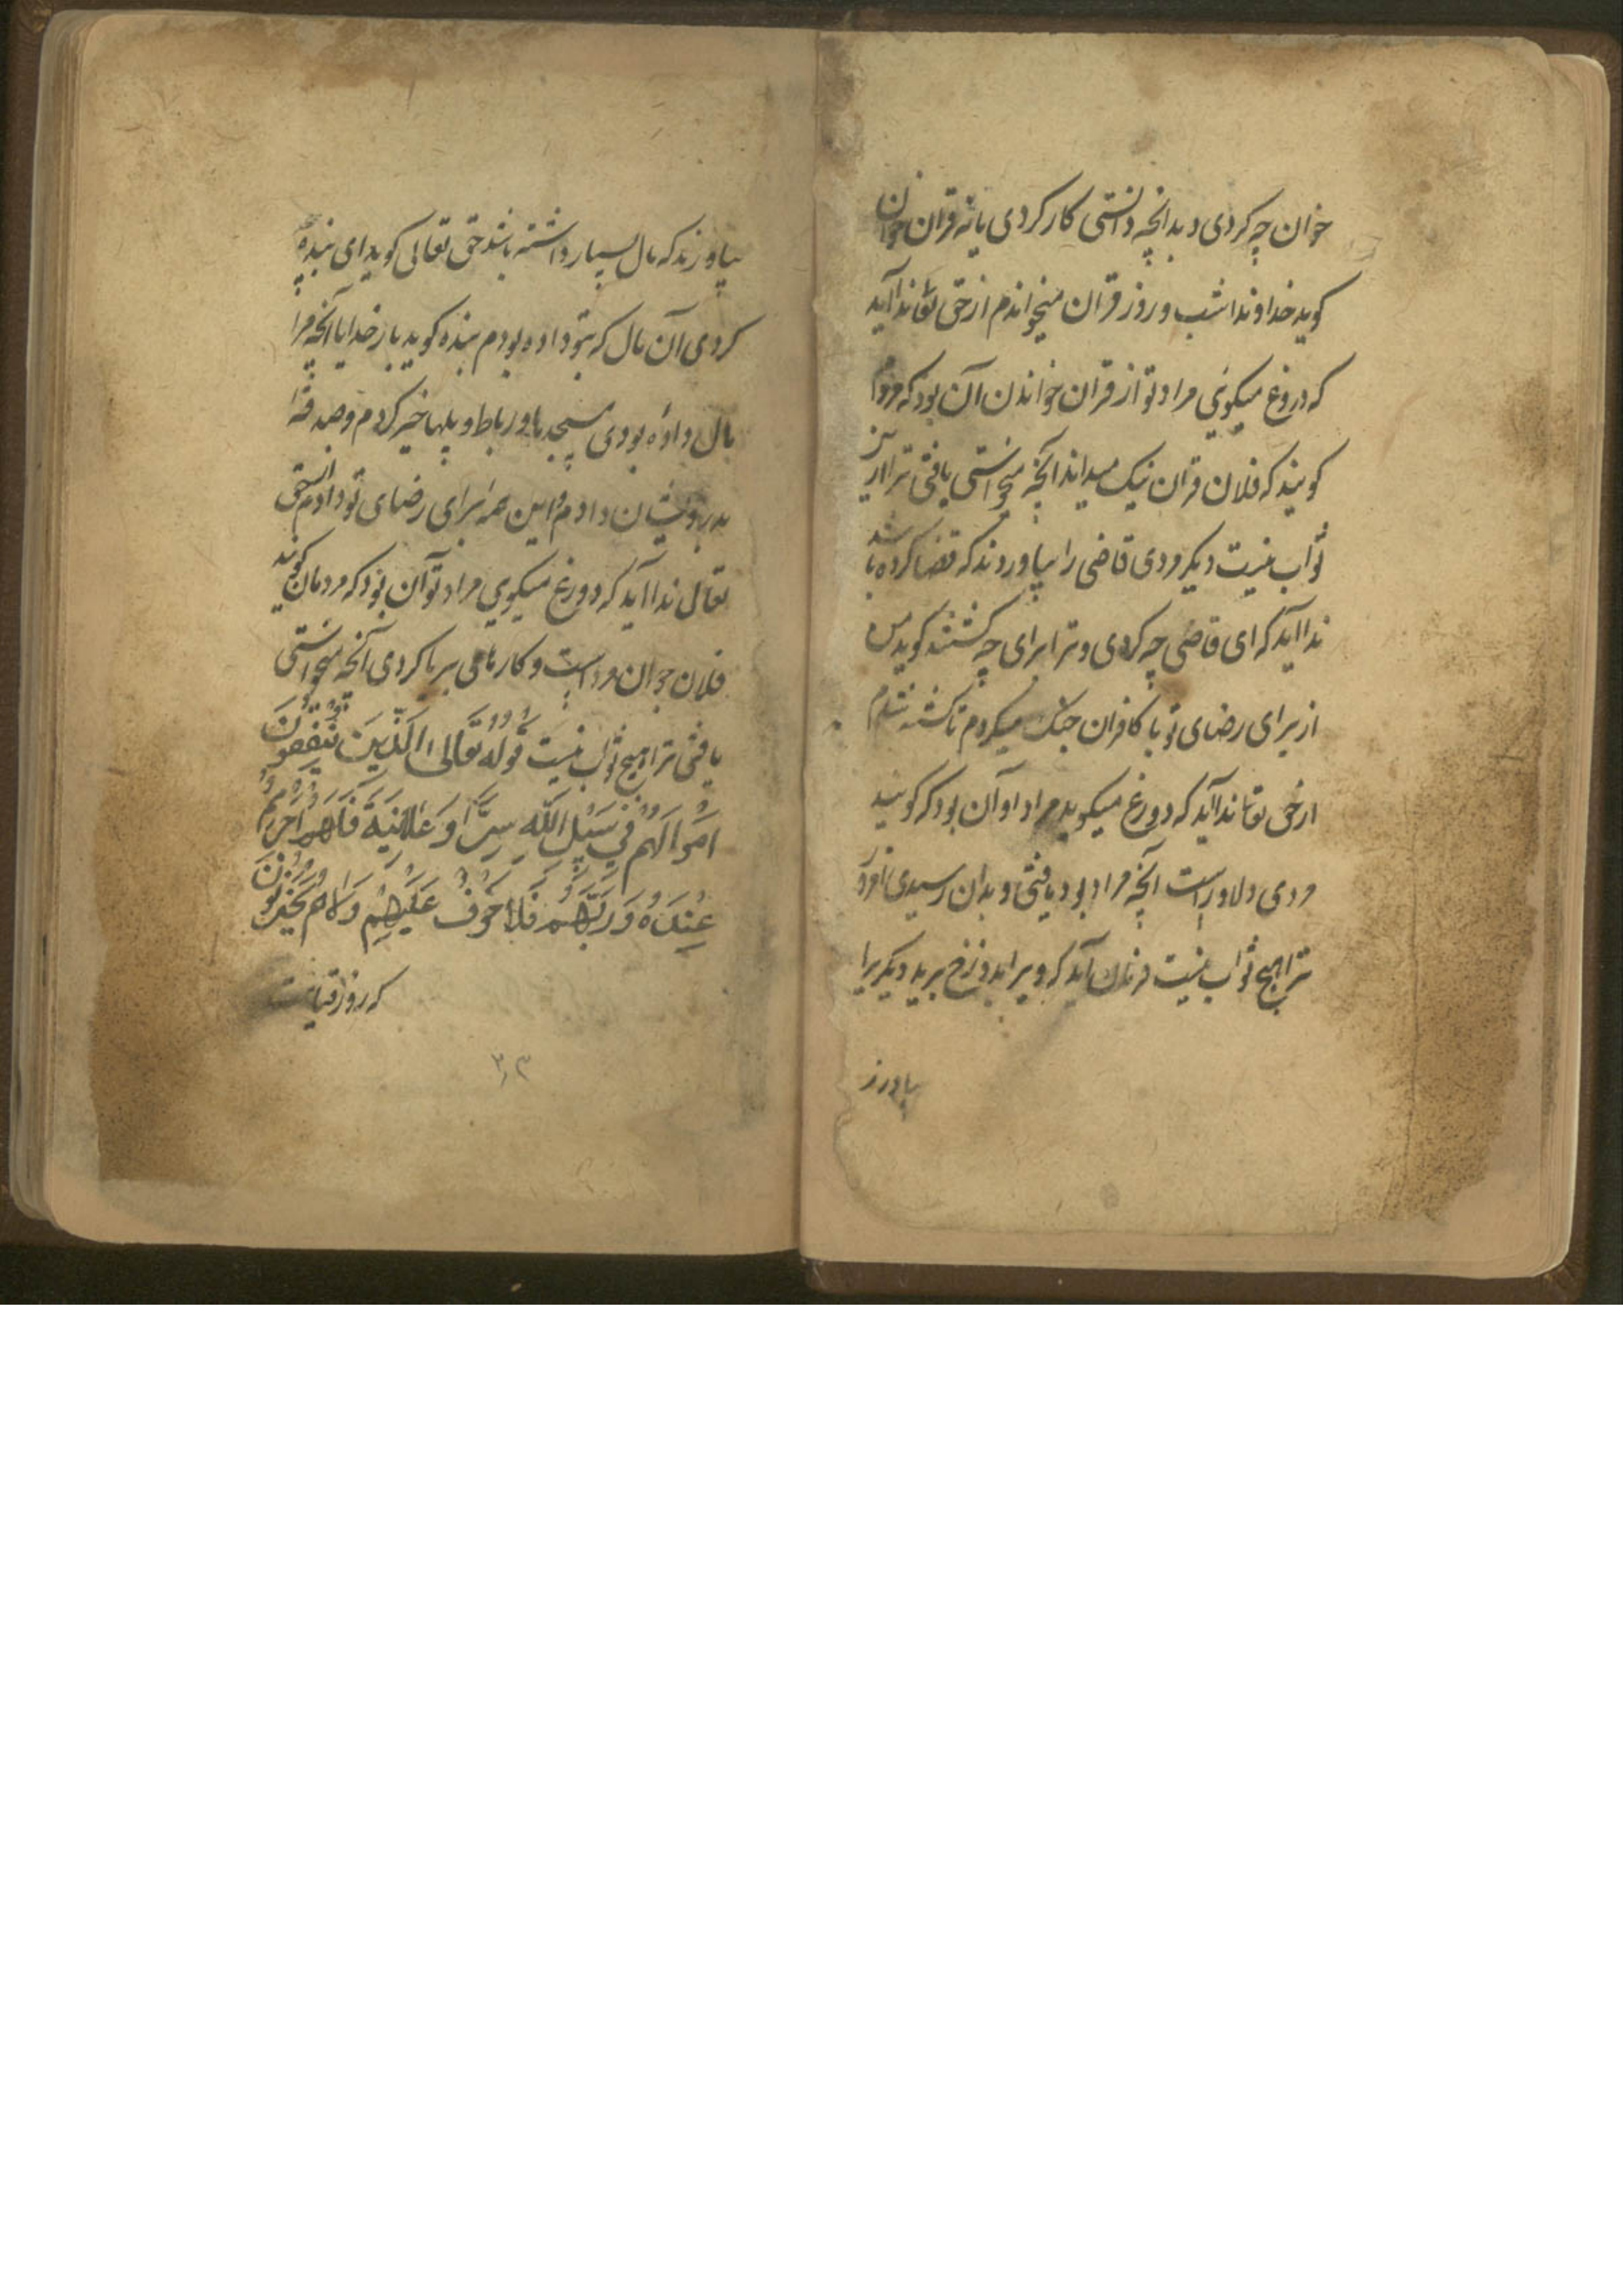 خوان چه کردی و بدانچه دانستی کار کردی یا نه قران خوان
کوید خداوندا شب و روز قران میخواندم از حق تعا ندا آید
که دروغ میکویی مراد تو از قران خواندن آن بود که مردم
کویند که فلان قران نیک میداند آنچه میخواستی یافتی ترا از
ثواب نیست دیکر ودی قاضی را بیاوردند که قضا کرده باشد
ندا آید که ای قاضی چه کردی و ترا برای چه کشتند کوید من
از برای رضای تو با کافران جنک میکردم تا کشته شدم
از حق تعا ندا آید که دورغ میکوید مراد او آن بود که کویند
مردی دلاور است آنچه مراد بود یافتی و بدان رسیدی امروز
ترا هیچ ثواب نیست آید که ویرا بدوزخ برید دیکر یرا
بیاورند
بیاورند که مال بسیار داشته باشد حق تعالی کوید ای بنده چه
کردی آن مال که بتو داده بودم بنده کوید بار خدایا آنچه مرا
مال داده بودی مسجدها و رباط و پلها خیر کردم و صدقه
بدرویشان دادم و این همه برای رضای تو دادم از حق
تعالی ندا آید که دورغ میکویی مراد تو آن بود که مردمان کویند
فلان جوان مرد است و کارهای بریا کردی آنچه میخواستی
یافتی ترا هیچ ثواب نیست قوله تعالی الذین ینفقون
اموالهم فی سبیل الله سرا و علانیة فلهم اجرهم
عنده و ربهم فلا خوف علیهم ولاهم یحزنون
که روز قیامت
۳۳